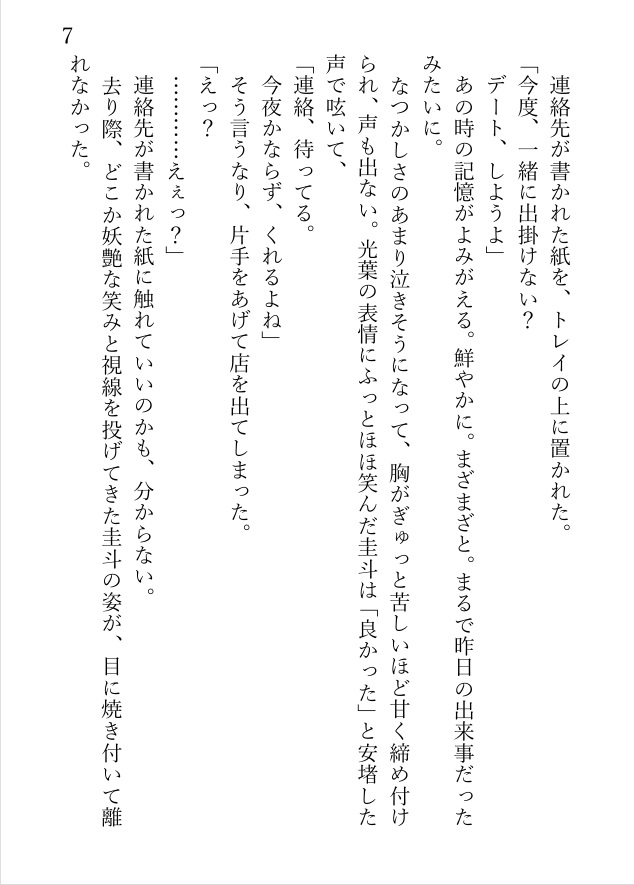 7
連絡先が書かれた紙を、トレイの上に置かれた。
「今度、一緒に出掛けない？
デート、しようよ」
あの時の記憶がよみがえる。鮮やかに。まざまざと。まるで昨日の出来事だった
みたいに。
なつかしさのあまり泣きそうになって、胸がぎゅっと苦しいほど甘く締め付け
られ、声も出ない。光葉の表情にふっとほほ笑んだ圭斗は「良かった」と安堵した
声で呟いて、
「連絡、待ってる。
今夜かならず、くれるよね」
そう言うなり、片手をあげて店を出てしまった。
「えっ？
…………えぇっ？」
連絡先が書かれた紙に触れていいのかも、分からない。
去り際、どこか妖艶な笑みと視線を投げてきた圭斗の姿が、目に焼き付いて離
れなかった。